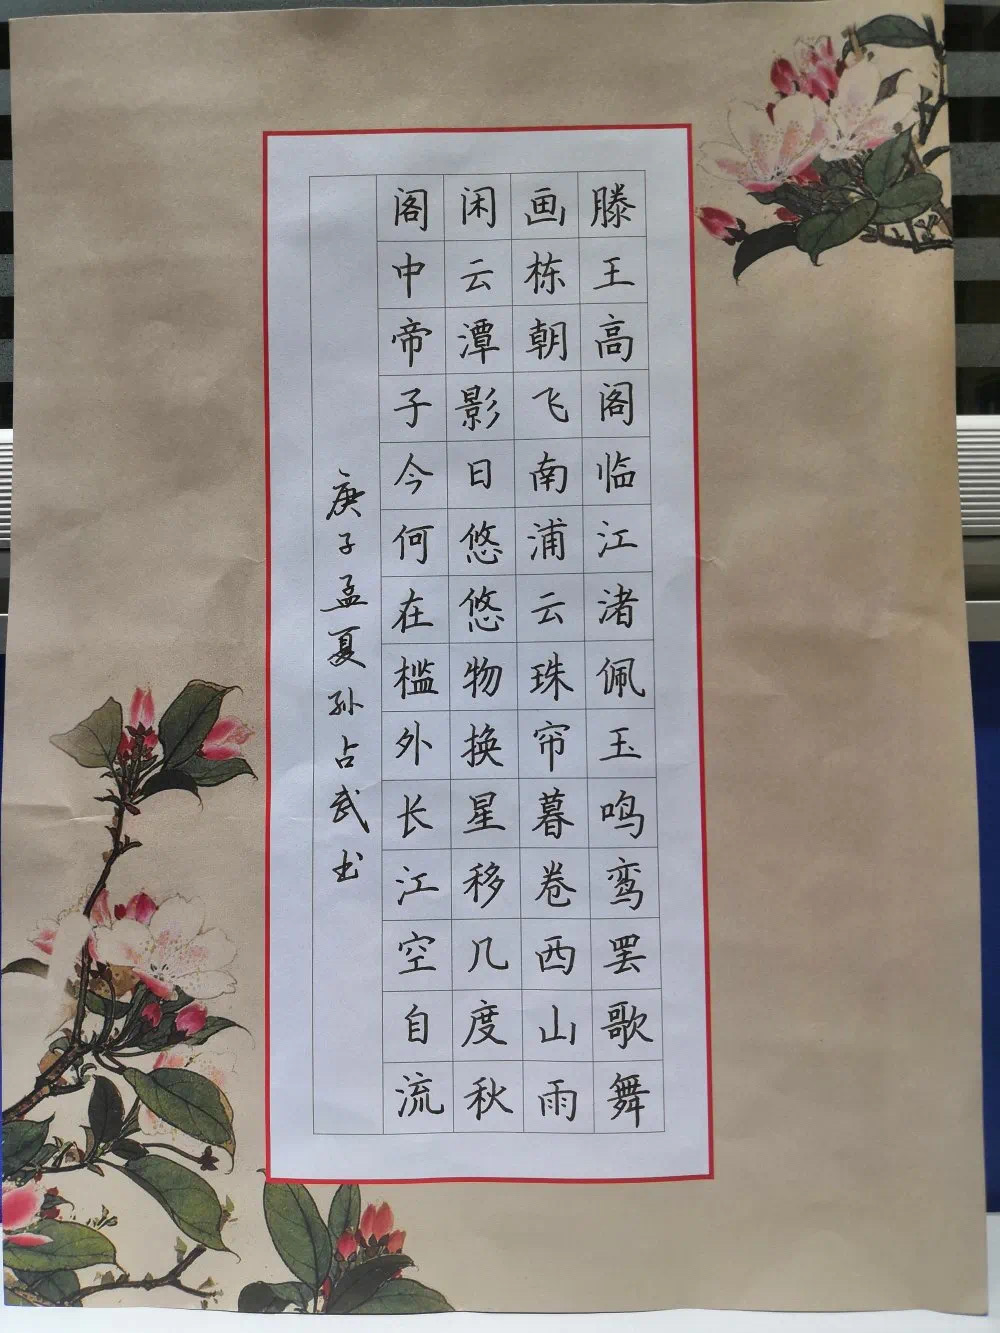 滕王高阁临江渚佩玉鸣鸾罢歌舞
画栋朝飞南浦云珠帘暮卷西山雨
闲云潭影日悠悠物换星移几度秋
阁中帝子今何在槛外长江空自流
庚子孟夏孙占武书